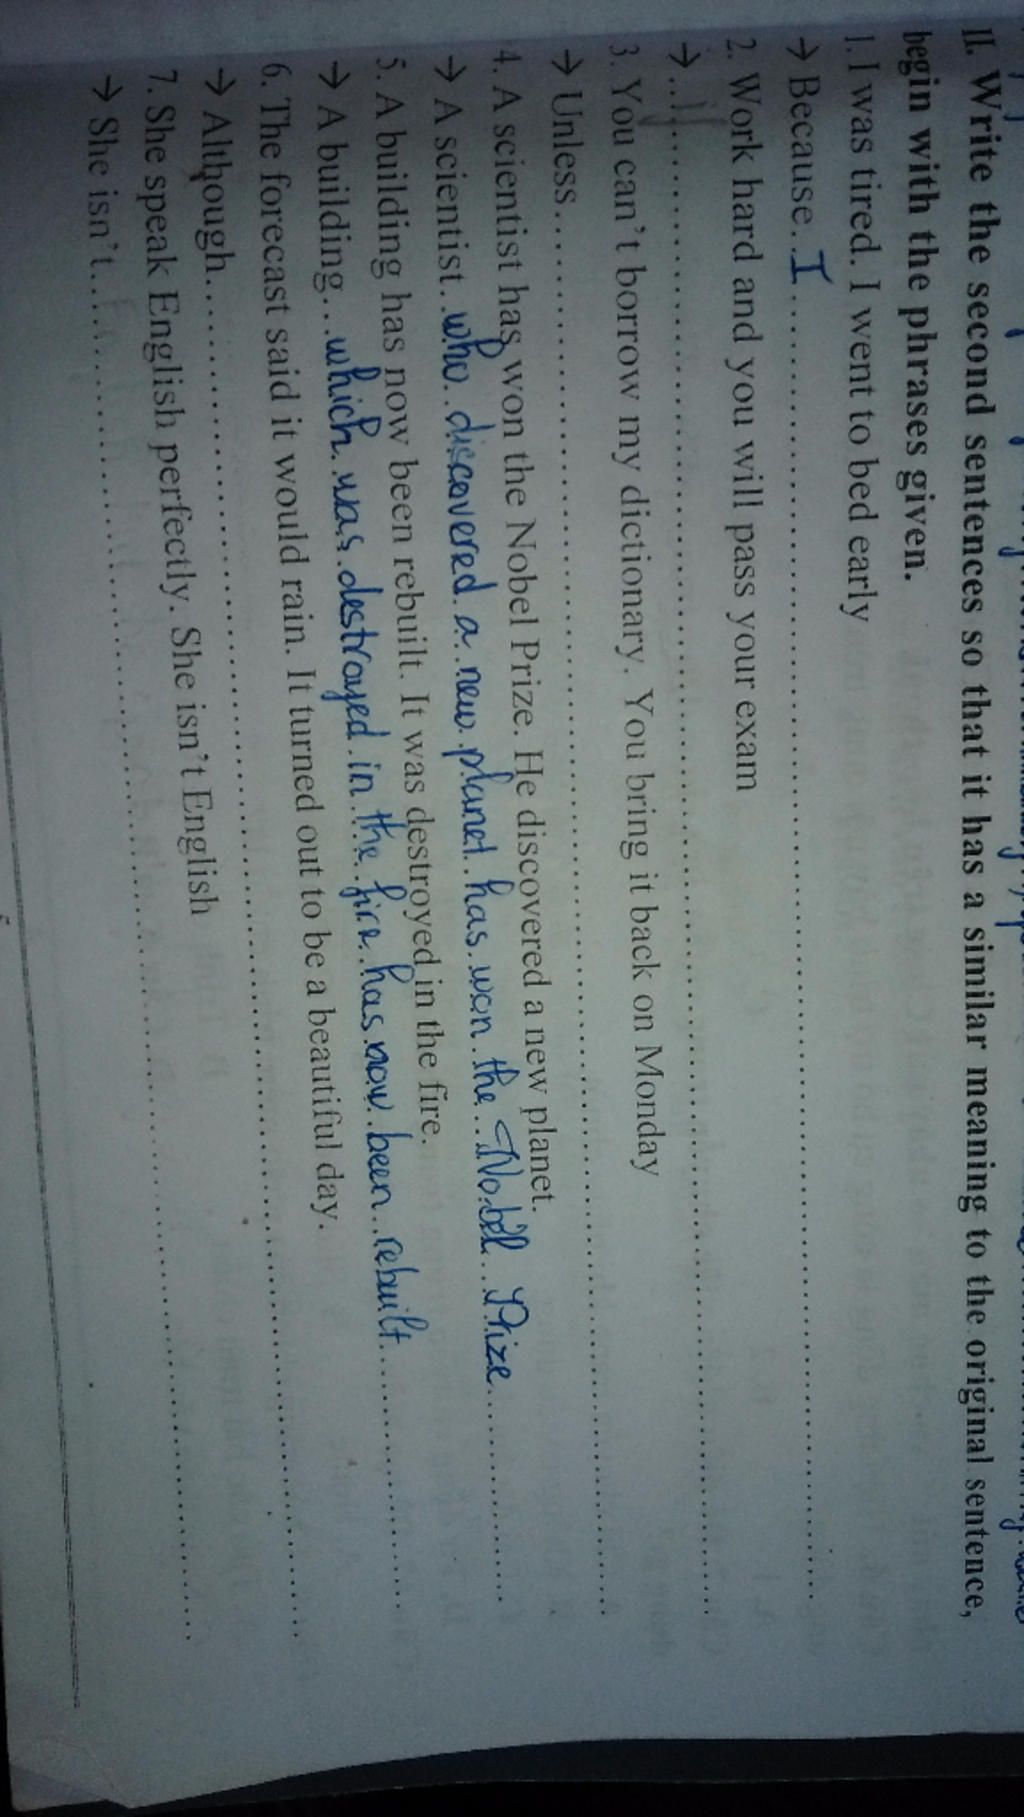 II. Write the second sentences so that it has a similar meaning to the original sentence,
begin with the phrases given.
1. I was tired. I went to bed early
→ Because..I....................
2. Work hard and you will pass your exam
→ ....................
3. You can't borrow my dictionary. You bring it back on Monday
→ Unless....................
4. A scientist has won the Nobel Prize. He discovered a new planet.
→ A scientist..who..discovered.a..new.planet..has.won.the...Nobel...Prize..........
5. A building has now been rebuilt. It was destroyed in the fire.
→ A building...which..was.destroyed.in.the..fire..has.now.been..rebuilt..........
6. The forecast said it would rain. It turned out to be a beautiful day.
→ Although....................
7. She speak English perfectly. She isn't English
→ She isn't....................